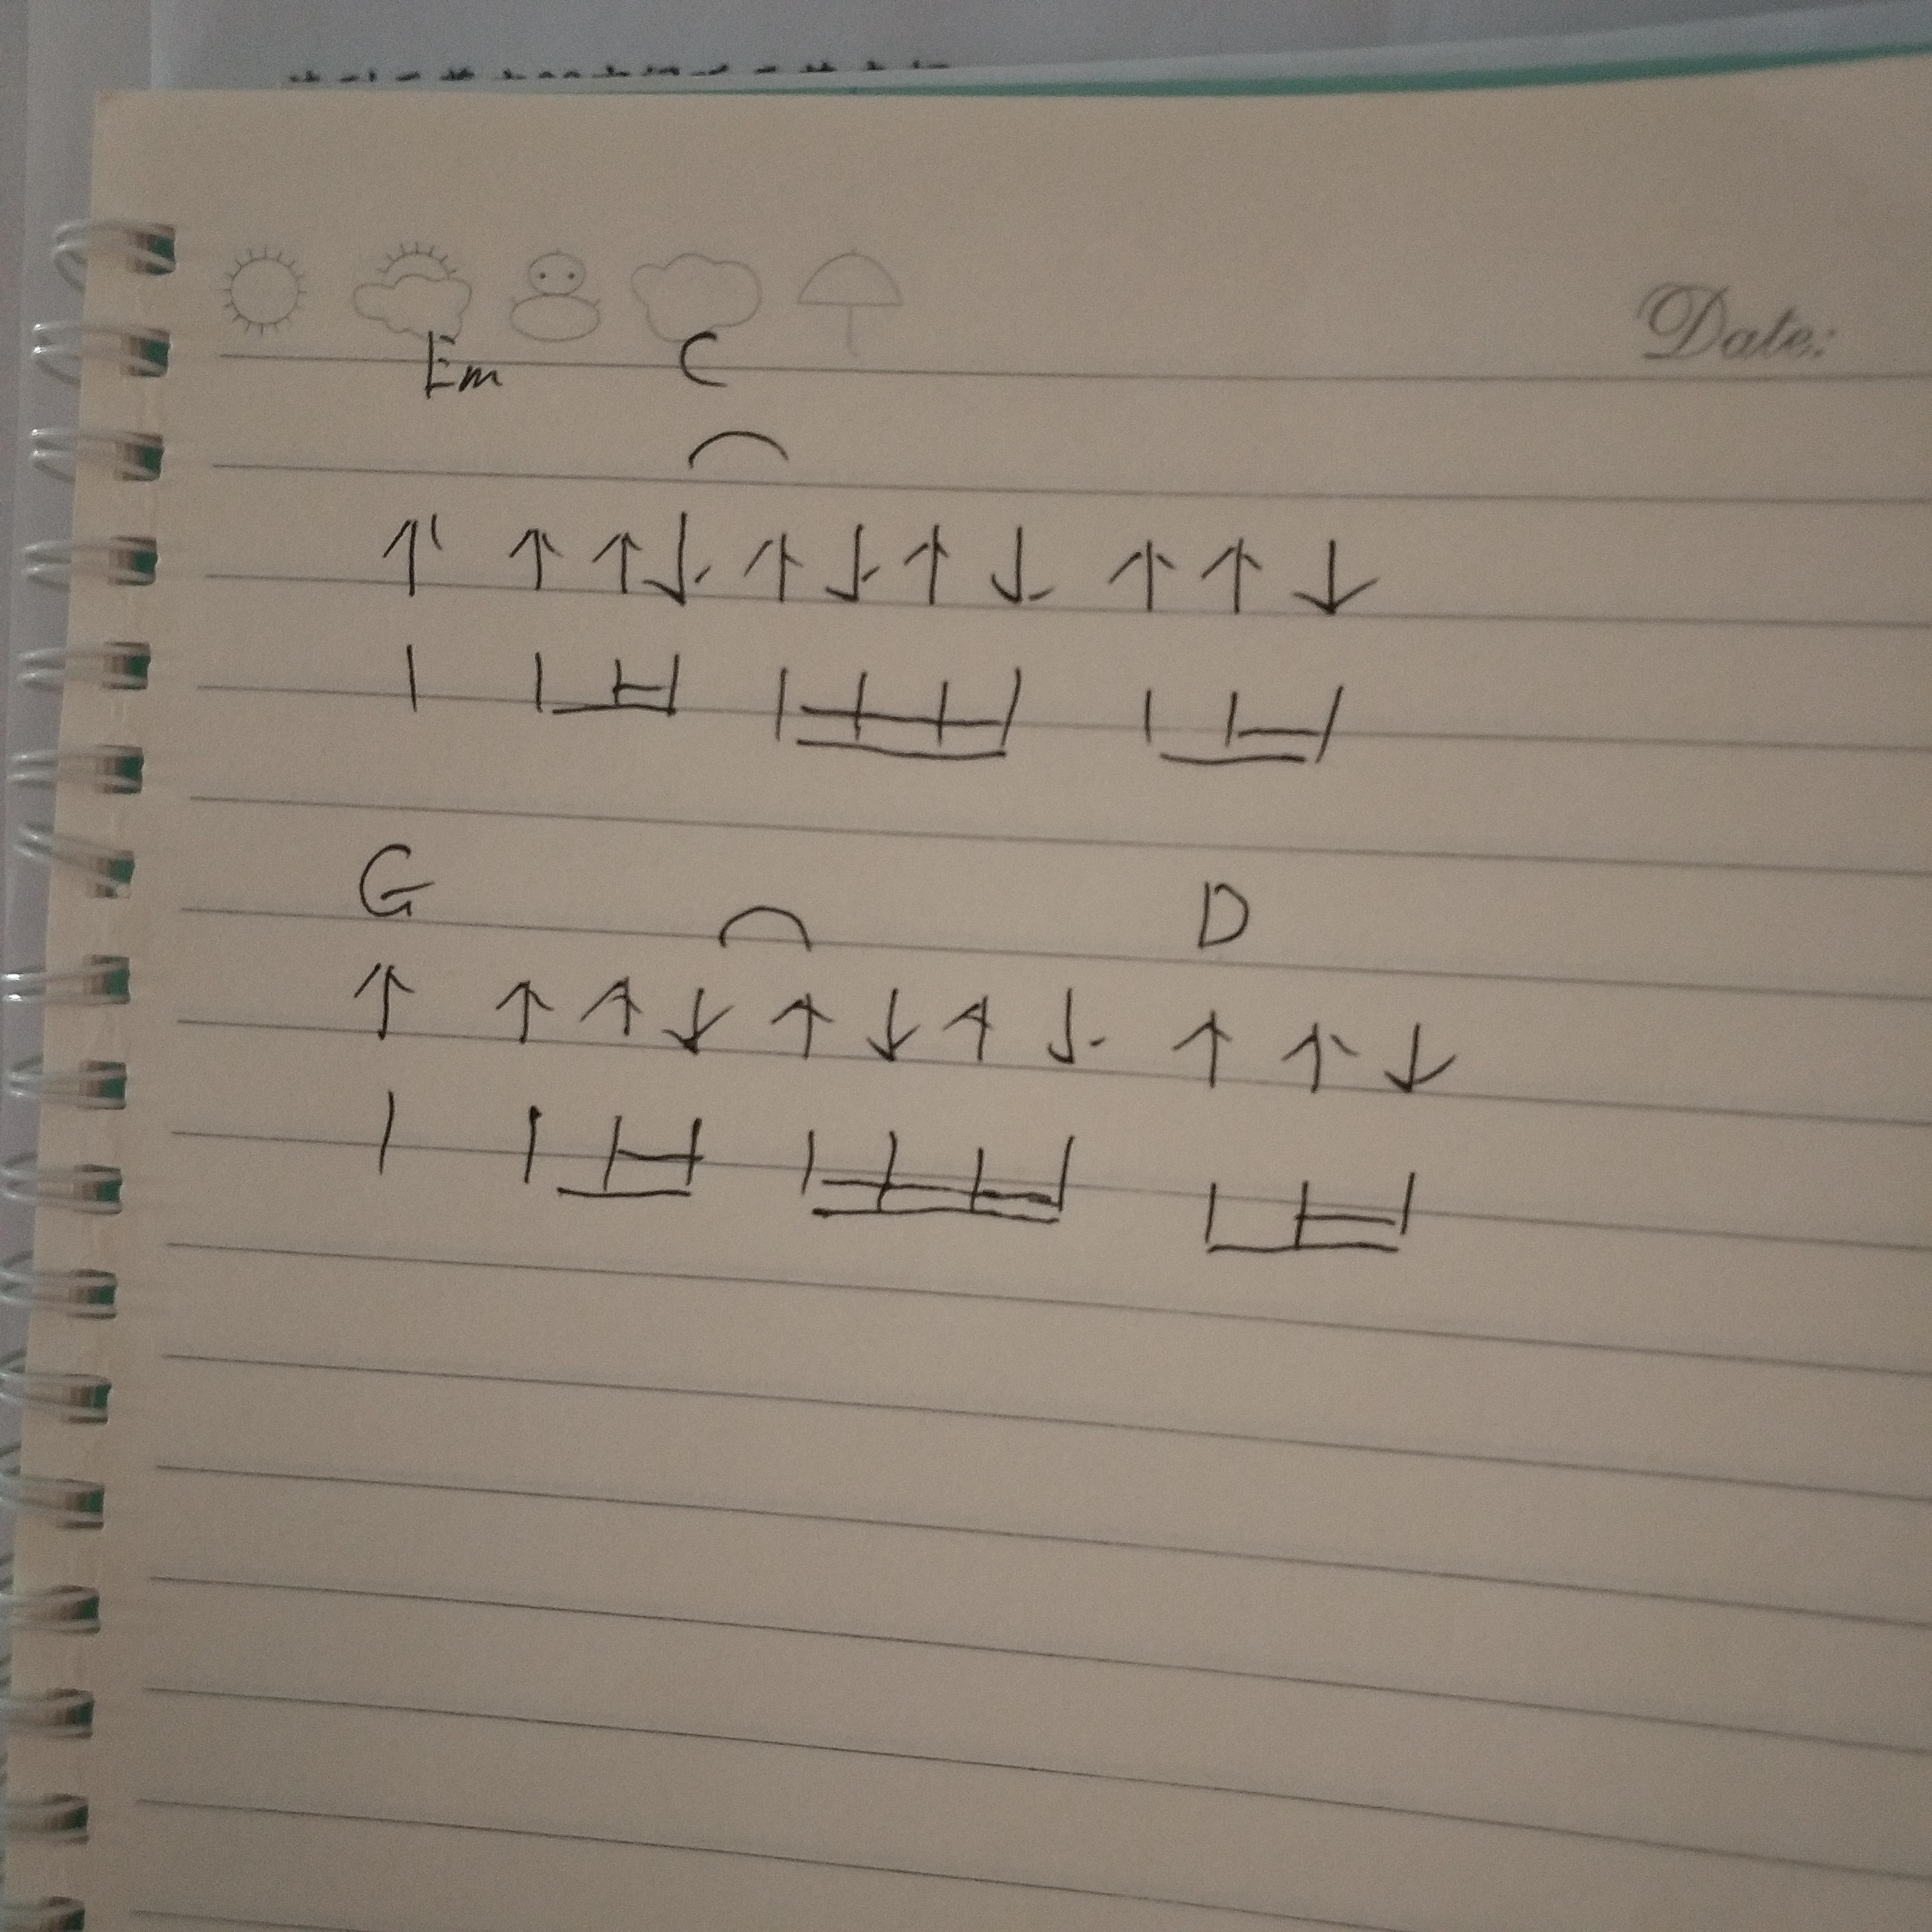 Date:
Em C
↑ ↑ ↑ ↓ ↑ ↓ ↑ ↓ ↑ ↑ ↓
G D
↑ ↑ ↑ ↓ ↑ ↓ ↑ ↓ ↑ ↑ ↓